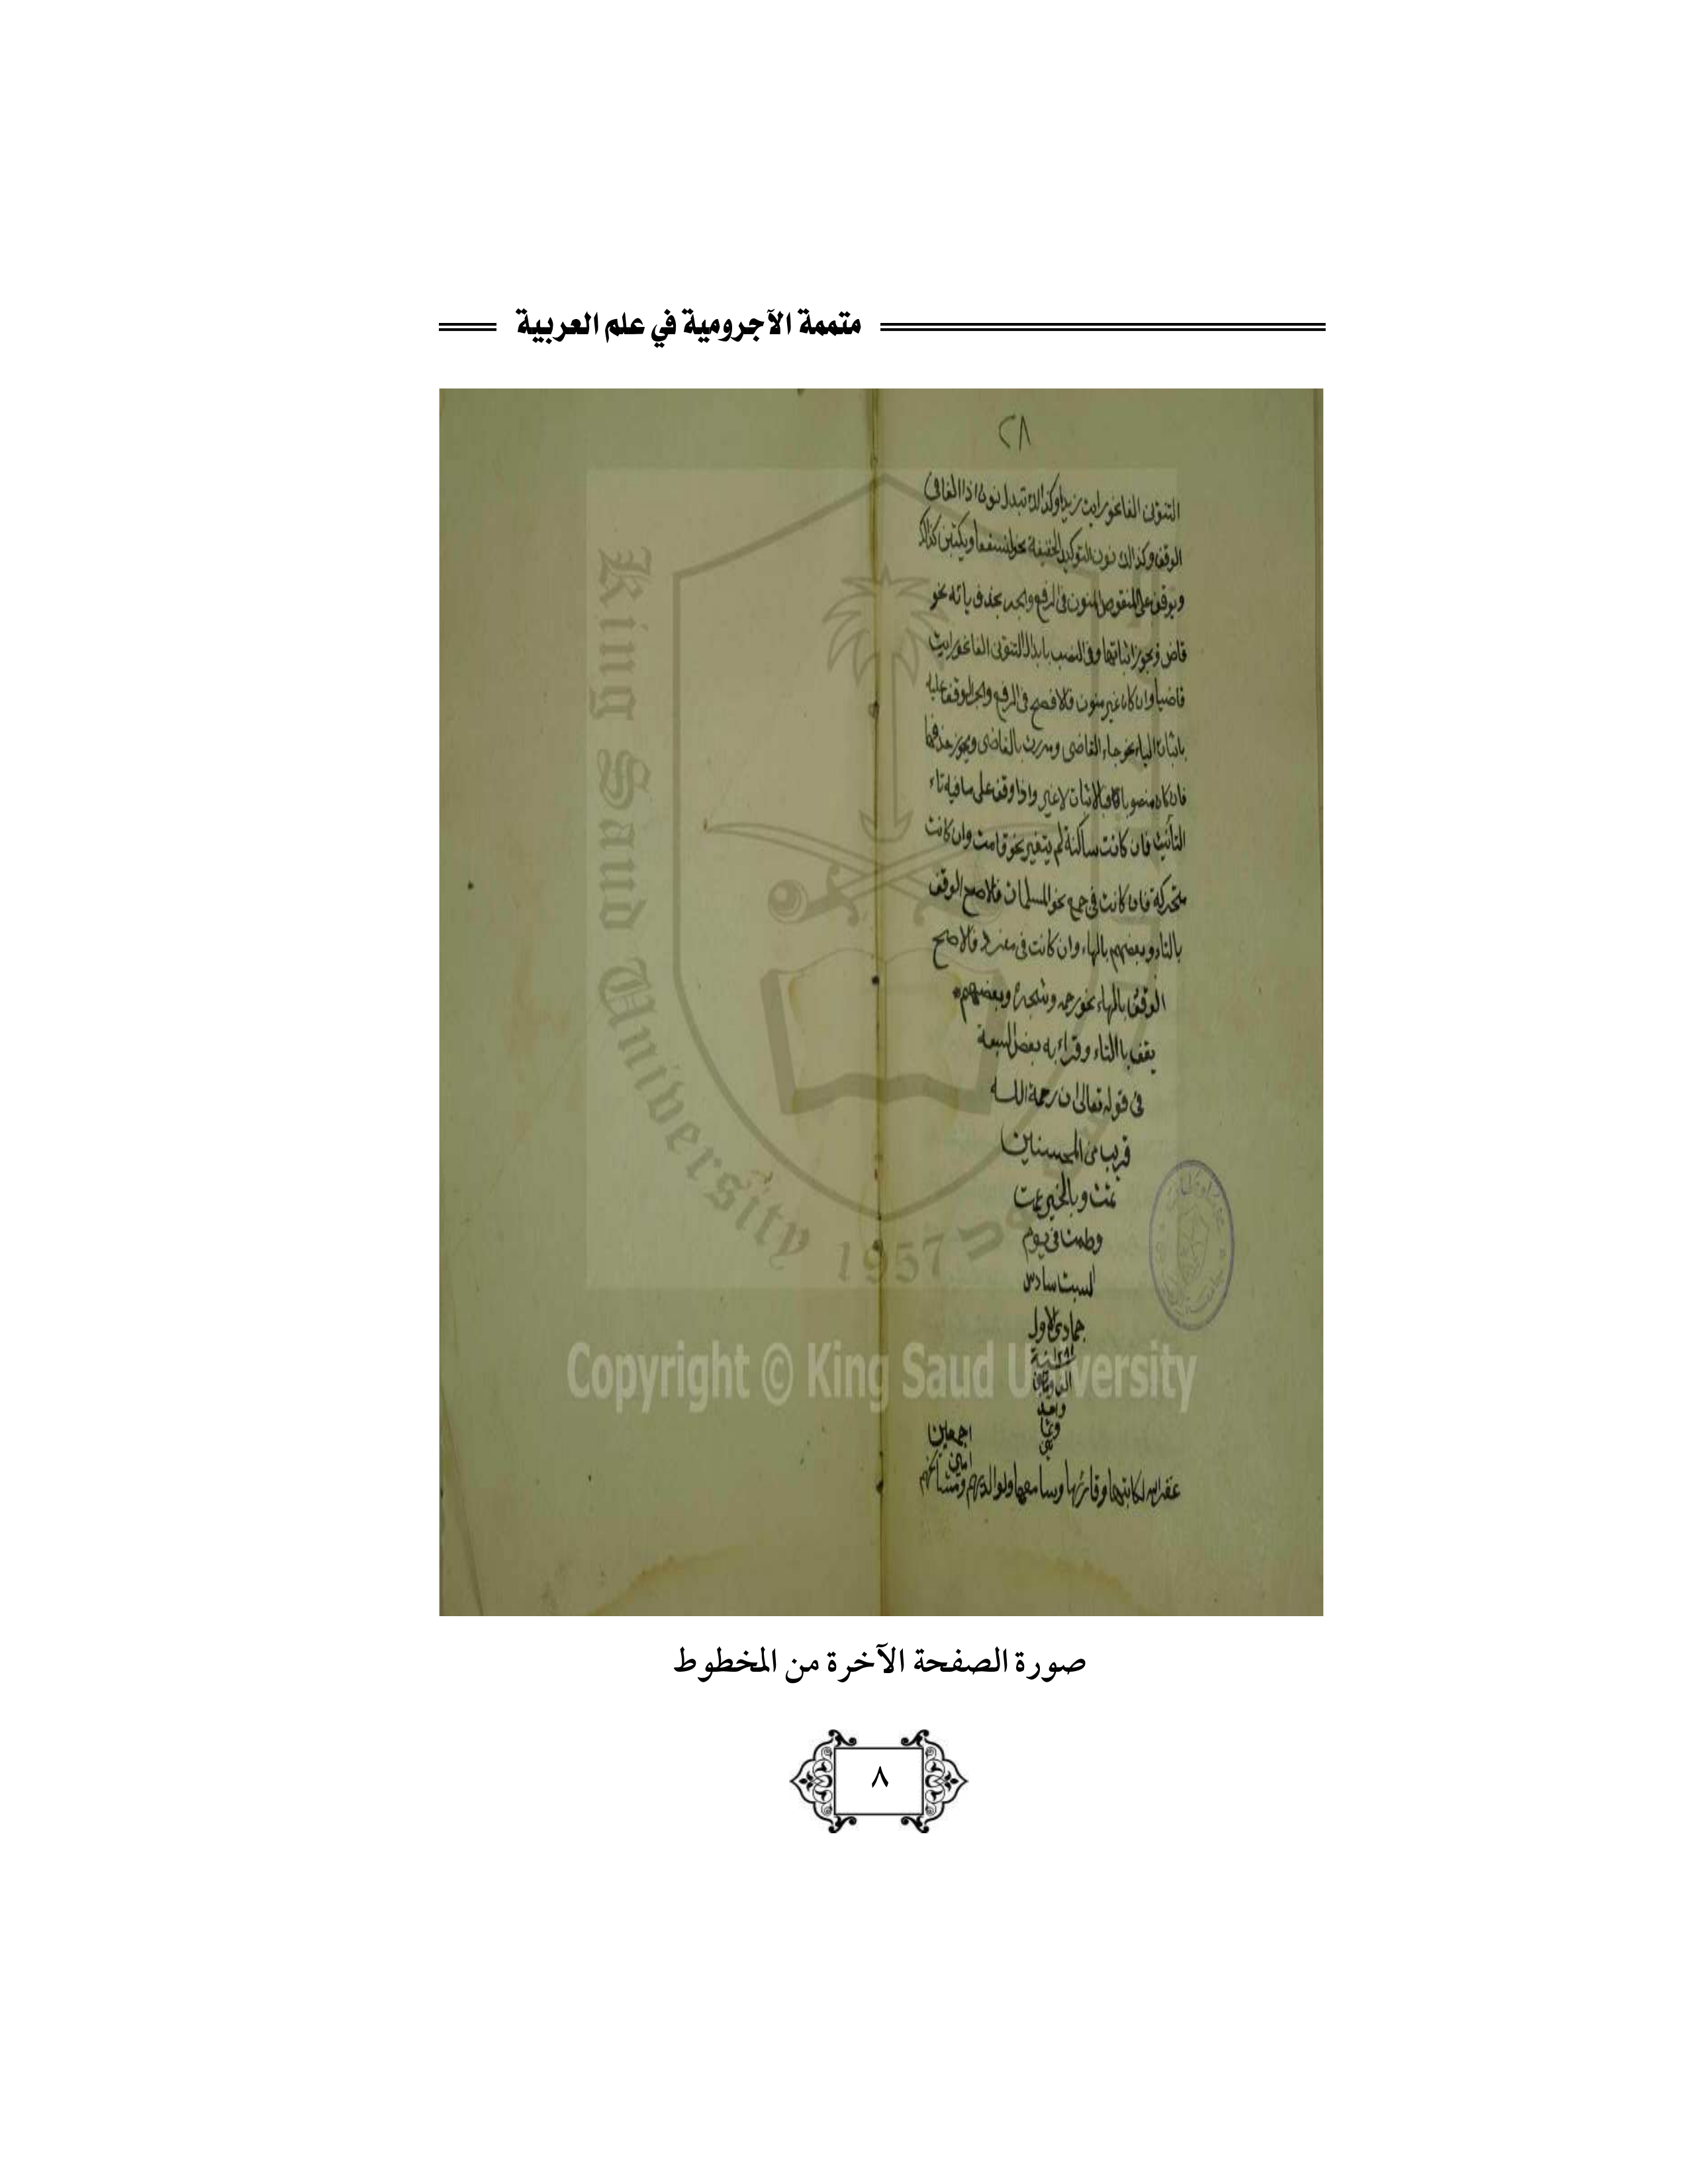 متممة الآجرومية في علم العربية
٢٨
التنوين الفا نحو رايت زيدا وكذالك تبدل نون اذا الفا في
الوقف وكذالك نون التوكيد الخفيفة نحو لنسفعا ويكتبن كذالك
ويوقف على المنقوص المنون في الرفع والجر بحذف يائه نحو
قاض ويجوز اثباتها وفي النصب بابدال التنوين الفا نحو رايت
قاضيا وان كان غير منون فالافصح في الرفع والجر الوقف عليه
باثبات الياء نحو جاء القاضي ومررت بالقاضي ويجوز حذفها
فان كان منصوبا فبالاثبات لا غير واذا وقف على ما فيه تاء
التأنيث فان كانت ساكنة لم يتغير نحو قامت وان كانت
متحركة فان كانت في جمع نحو المسلمات فالاصح الوقف
بالتاء وبعضهم بالهاء وان كانت في مفرد فالاصح
الوقف بالهاء نحو رحمه وشجره وبعضهم
يقف باالتاء وقراء به بعض السبعة
في قوله تعالى ان رحمة اللـه
قريب من المحسنين
تمت وبالخير عمت
في يوم
السبت سادس
جمادى الاول
سنة ١٢٩١
واحد
اجمعين
امين
لكاتبها وقارئها وسامعها ولوالديهم ومشائخهم
King Saud University
1957
Copyright © King Saud University
صورة الصفحة الآخرة من المخطوط
٨